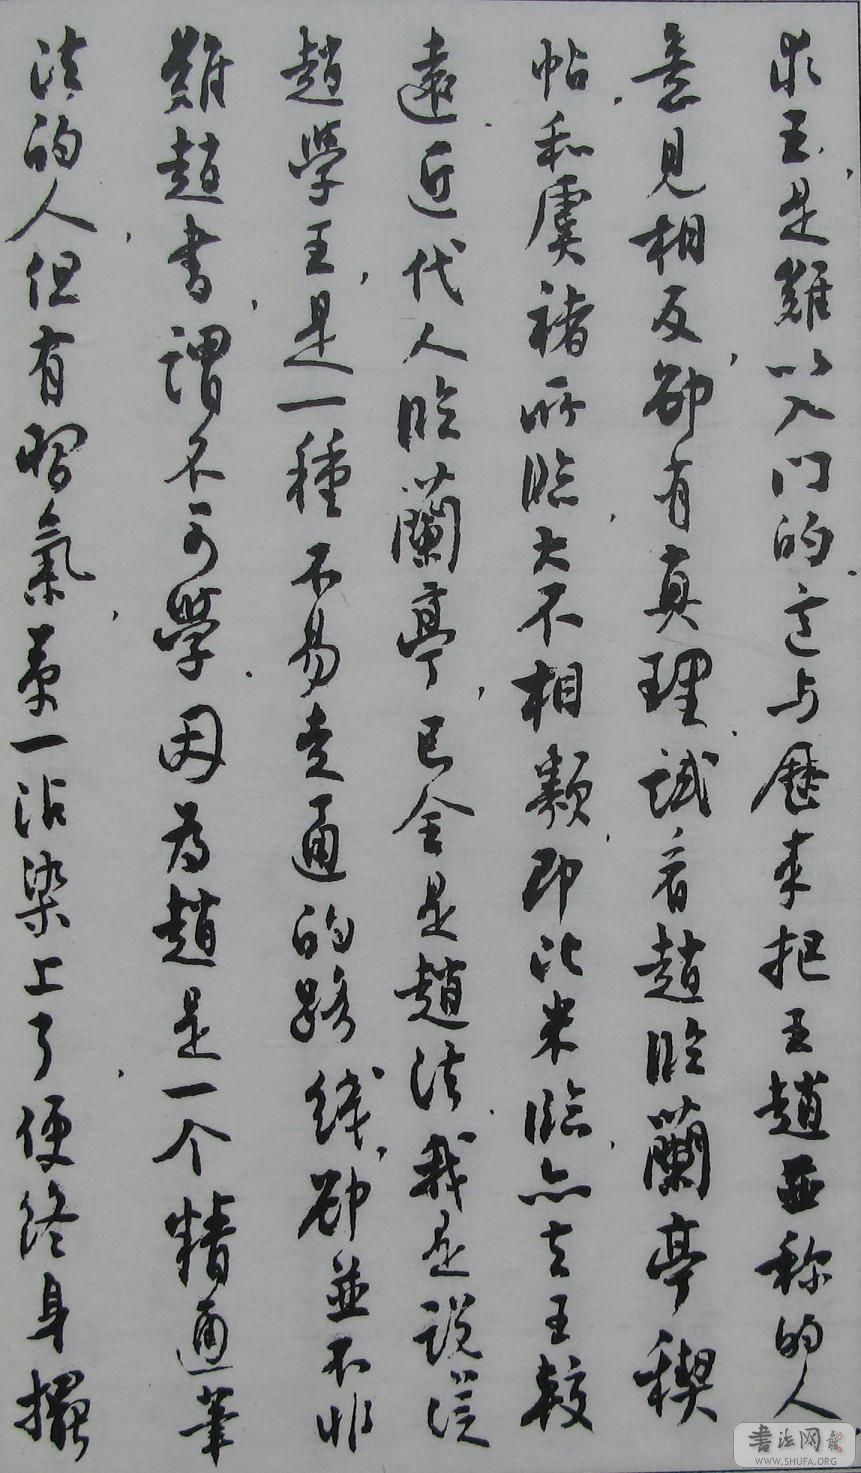 求王是難以入门的這与歷来把王趙並称的人
意見相反卻有真理試看趙临蘭亭稧
帖和虞褚所临大不相類即比米临亦去王較
遠近代人临蘭亭已全是趙法我是説從
趙學王是一種不易走通的路线卻並不非
難趙書謂不可學因为趙是一个精通筆
法的人但有習氣一沾染上了便终身擺
書法网
WWW.SHUFA.ORG